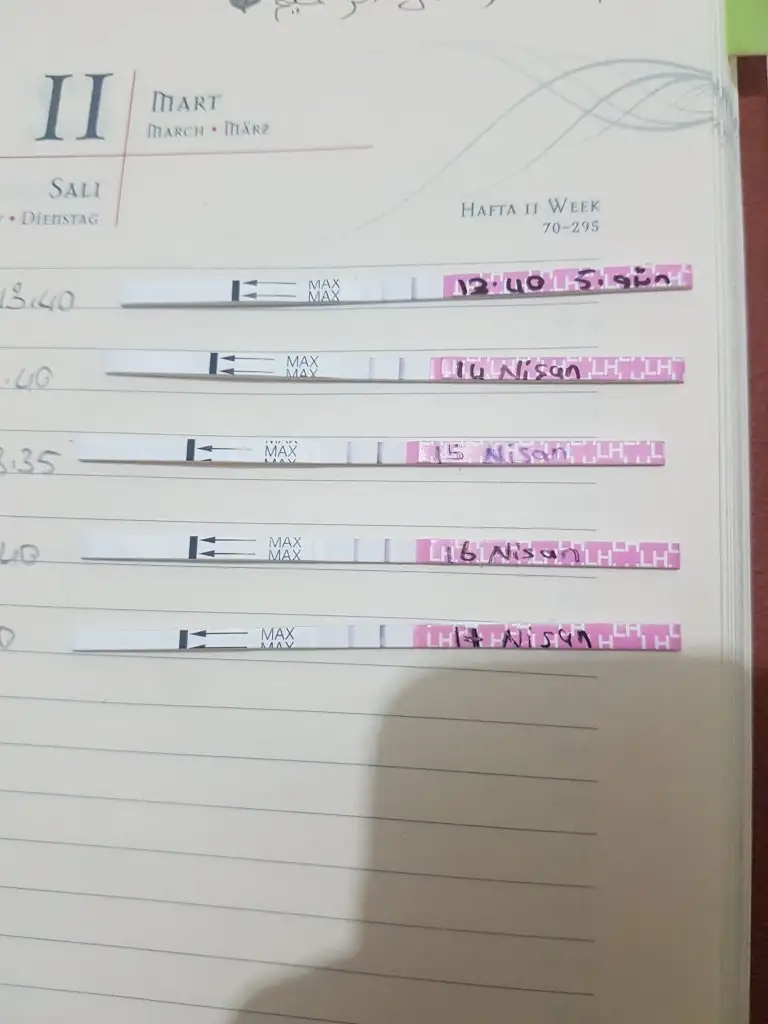 II
MART
MARCH • MÄRZ
SALI
• DIENSTAG
HAFTA II WEEK
70-295
13.40
MAX
MAX
13.40 5.gün LH
.40
MAX
MAX
14 Nisan LH LH
3.35
MAX
MAX
MAX
15 Nisan LH
40
MAX
MAX
LH 16 Nisan LH LH
0
MAX
MAX
LH 17 Nisan LH LH